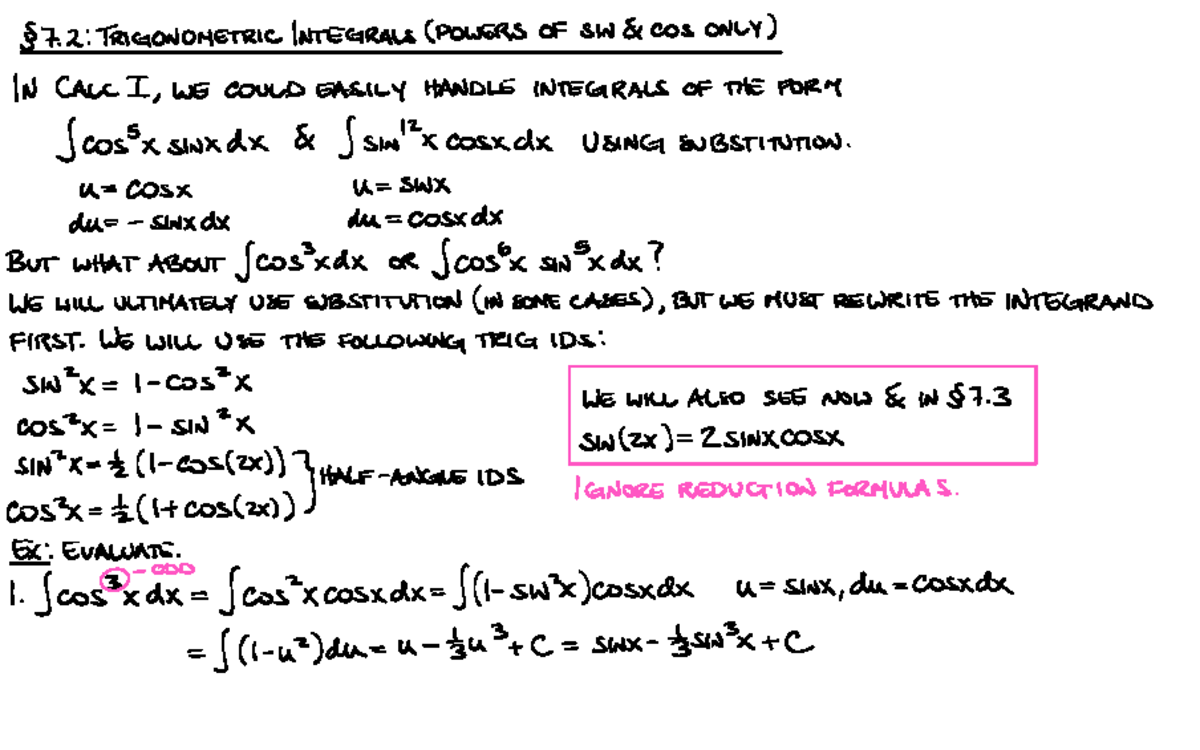 §7.2: TRIGONOMETRIC INTEGRALS (POWERS OF SIN & COS ONLY)
IN CALC I, WE COULD EASILY HANDLE INTEGRALS OF THE FORM
∫cos⁵x sinx dx & ∫sin¹²x cosx dx USING SUBSTITUTION.
u = cosx u = sinx
du = - sinx dx du = cosx dx
BUT WHAT ABOUT ∫cos³x dx OR ∫cos⁶x sin⁵x dx?
WE WILL ULTIMATELY USE SUBSTITUTION (IN SOME CASES), BUT WE MUST REWRITE THE INTEGRAND
FIRST. WE WILL USE THE FOLLOWING TRIG IDS:
sin²x = 1-cos²x
cos²x = 1- sin²x
sin²x = ½(1-cos(2x))
cos²x = ½(1+cos(2x))
} HALF-ANGLE IDS
WE WILL ALSO SEE NOW & IN §7.3
sin(2x) = 2 sinx cosx
IGNORE REDUCTION FORMULAS.
EX: EVALUATE.
- ODD
1. ∫cos³x dx = ∫cos²x cosx dx = ∫(1-sin²x)cosx dx u = sinx, du = cosx dx
= ∫(1-u²)du = u - ⅓u³ + C = sinx - ⅓sin³x + C